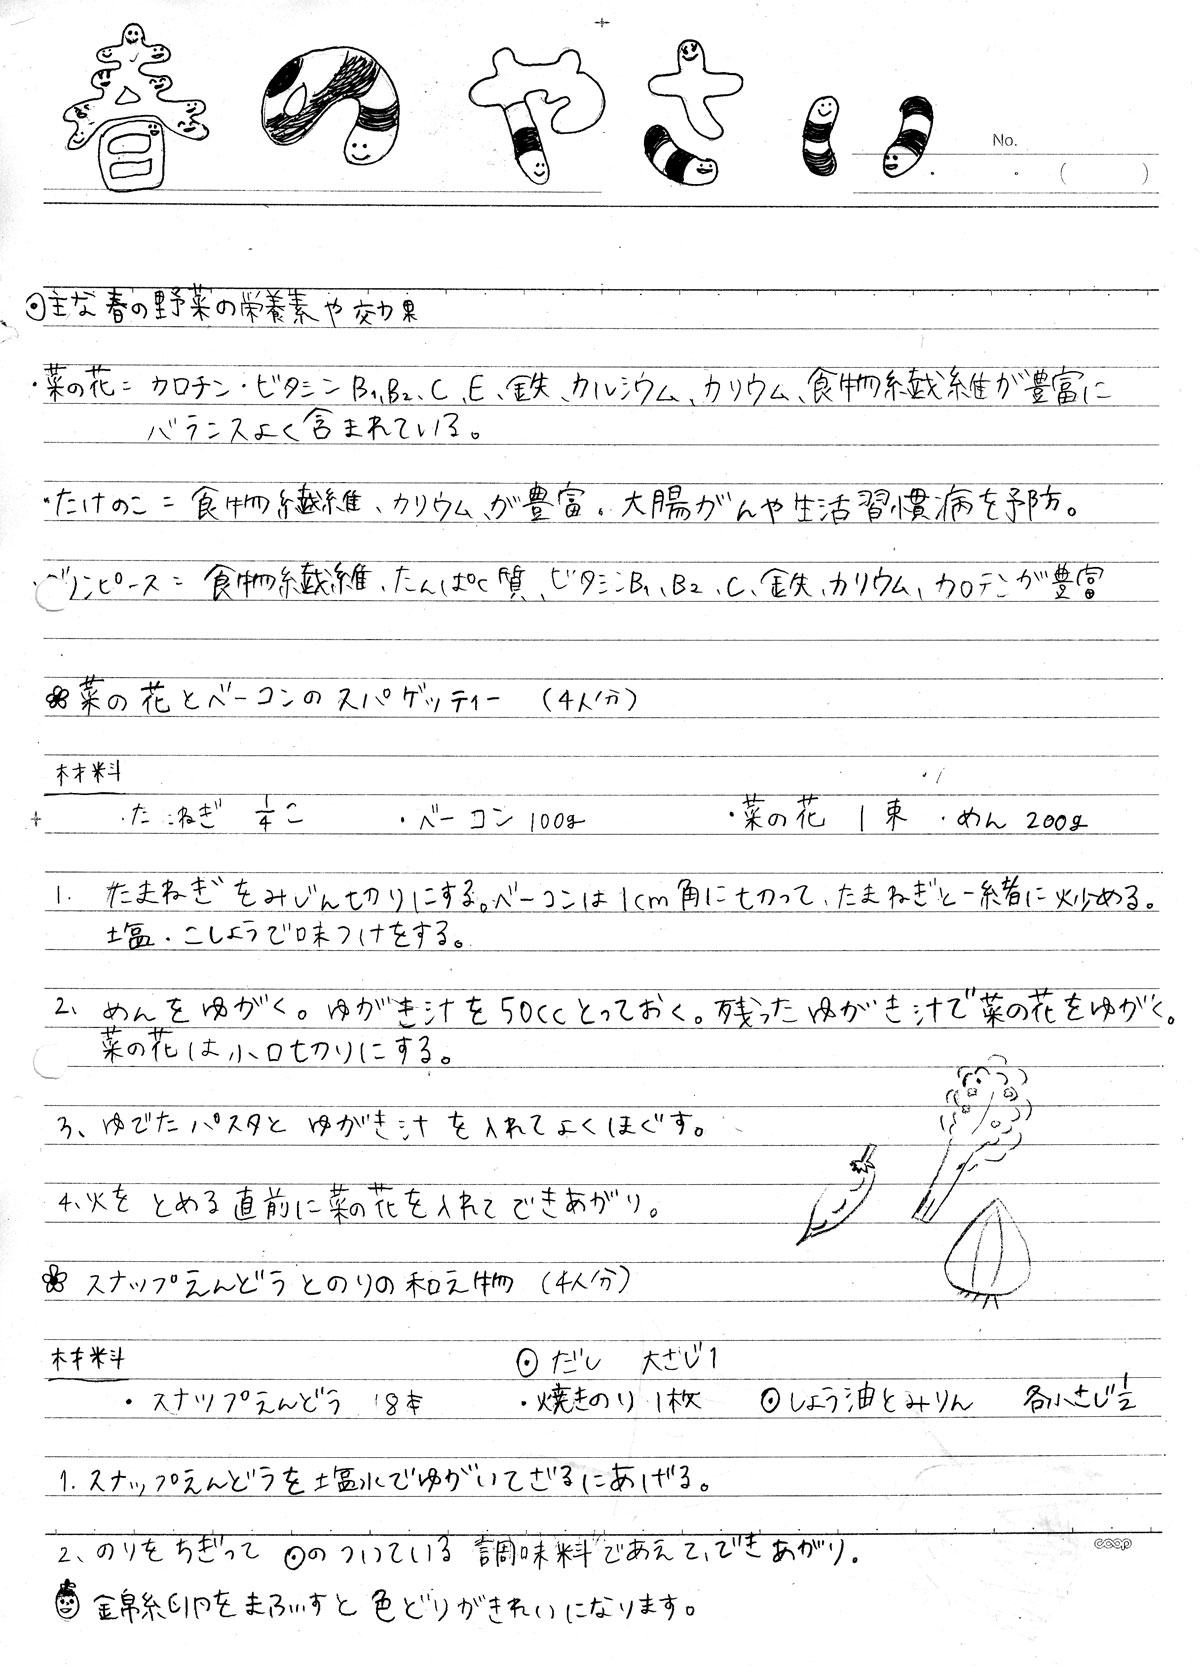 春のやさい
No.
・ ・ ( )
⦿主な春の野菜の栄養素や効果
・菜の花=カロチン・ビタミンB1、B2、C、E、鉄、カルシウム、カリウム、食物繊維が豊富に
バランスよく含まれている。
・たけのこ=食物繊維、カリウム、が豊富。大腸がんや生活習慣病を予防。
リンピース=食物繊維、たんぱく質、ビタミンB1、B2、C、鉄、カリウム、カロテンが豊富
❀菜の花とベーコンのスパゲッティー (4人分)
材料
・たまねぎ 1/4こ ・ベーコン 100g ・菜の花 1束 ・めん 200g
1. たまねぎをみじん切りにする。ベーコンは1cm角に切って、たまねぎと一緒に炒める。
塩・こしょうで味つけをする。
2. めんをゆがく。ゆがき汁を50ccとっておく。残ったゆがき汁で菜の花をゆがく。
菜の花は小口切りにする。
3、ゆでたパスタとゆがき汁を入れてよくほぐす。
4、火をとめる直前に菜の花を入れてできあがり。
❀ スナップえんどうとのりの和え物 (4人分)
材料 ⦿だし 大さじ1
・スナップえんどう 18本 ・焼きのり 1枚 ⦿しょう油とみりん 各小さじ1/2
1. スナップえんどうを塩水でゆがいてざるにあげる。
2、のりをちぎって⦿のついている調味料であえて、できあがり。
coop
錦糸卵をまぶすと色どりがきれいになります。